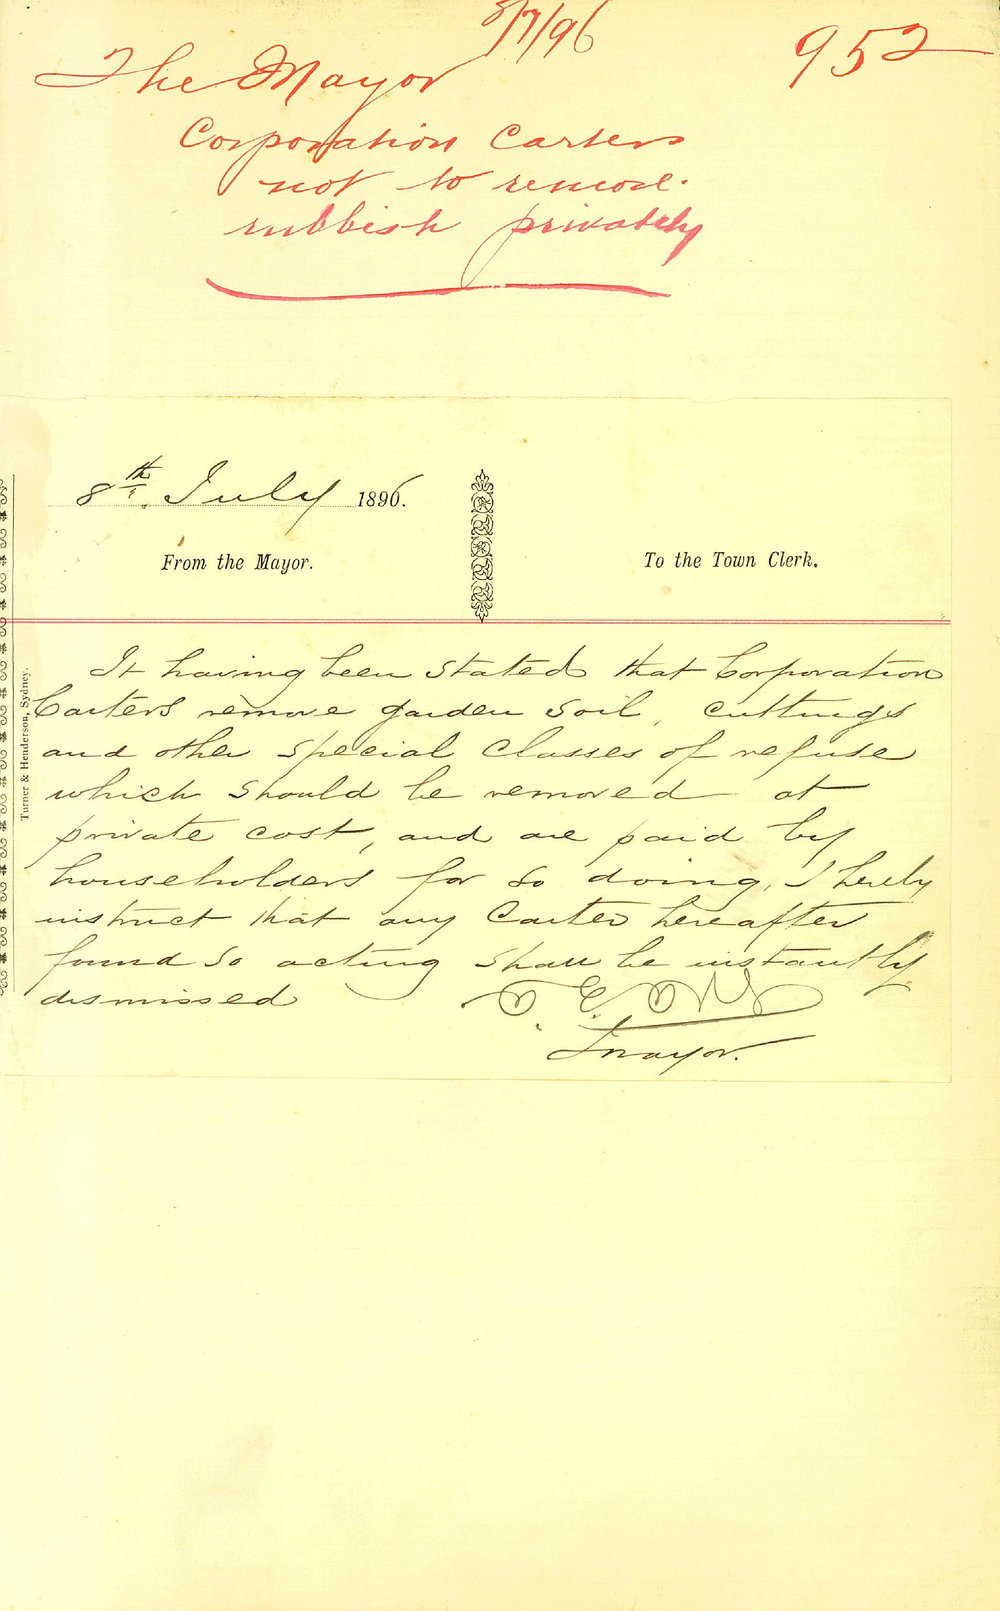 8/7/96
952
The Mayor
Corporation Carters
not to remove
rubbish privately
8th. July 1896.
From the Mayor.
To the Town Clerk.
Turner & Henderson, Sydney.
It having been stated that Corporation
Carters remove garden soil, cuttings
and other special classes of refuse
which should be removed at
private cost, and are paid by
householders for so doing, I hereby
instruct that any Carter hereafter
found so acting shall be instantly
dismissed
Mayor.